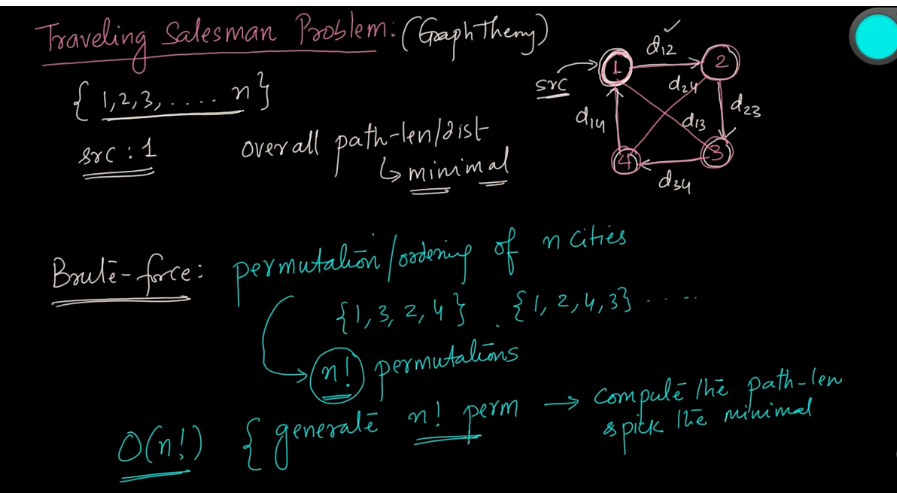 Traveling Salesman Problem: (Graph Theory)
{ 1,2,3, . . . . n }
src : 1
overall path-len/dist
↳ minimal
src
1
2
3
4
d12 ✓
d24
d23
d14
d13
d34
Brute-force: permutation/ordering of n cities
{1, 3, 2, 4} , {1, 2, 4, 3} . . . . .
n! permutations
O(n!) { generate n! perm → compute the path-len
& pick the minimal